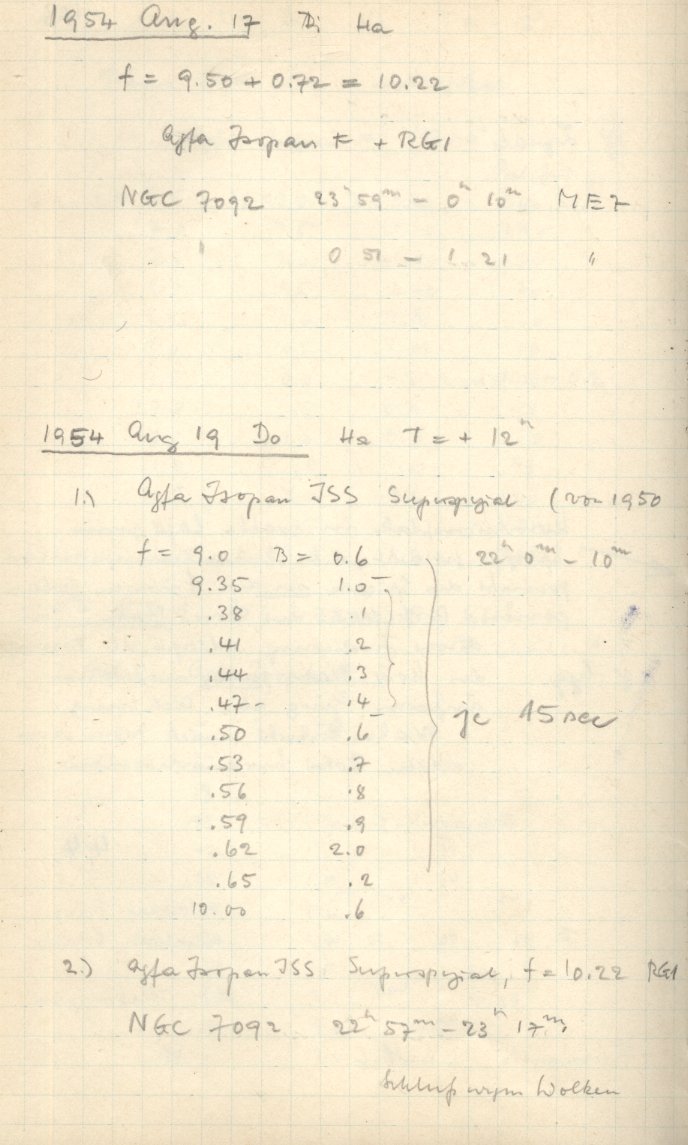 1954 Aug. 17 Di Ha
f = 9.50 + 0.72 = 10.22
Agfa Isopan F + RG1
NGC 7092 23ʰ 59ᵐ – 0ʰ 10ᵐ MEZ
" 0 51 – 1 21 "
1954 Aug 19 Do Ha T = + 12ʰ
1.) Agfa Isopan ISS Superspezial (von 1950
f = 9.0 B = 0.6 22ʰ 0ᵐ – 10ᵐ
9.35 1.0
.38 .1
.41 .2
.44 .3
.47 .4
.50 .6
je 15 sec
.53 .7
.56 .8
.59 .9
.62 2.0
.65 .2
10.00 .6
2.) Agfa Isopan ISS Superspezial, f = 10.22 RG1
NGC 7092 22ʰ 57ᵐ – 23ʰ 17ᵐ.
Schluß wegen Wolken